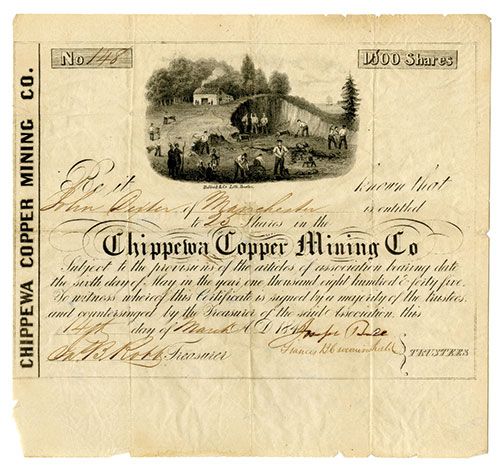 CHIPPEWA COPPER MINING CO.
No 148
1500 Shares
Be it known that
John Dexter of Manchester is entitled
to 25 Shares in the
Chippewa Copper Mining Co
Subject to the provisions of the articles of association bearing date
the sixth day of May in the year one thousand eight hundred & forty five.
To witness whereof this Certificate is signed by a majority of the trustees
and countersigned by the Treasurer of the said Association, this
14th day of March A.D. 184
Joseph
Jn. B. Robb Treasurer
Francis TRUSTEES